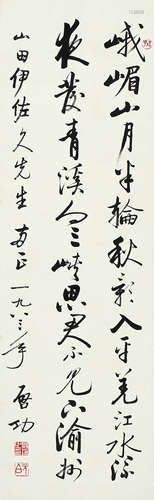 峨嵋山月半轮秋影入平羌江水流
夜发青溪向三峡思君不见下渝州
山田伊佐久先生两正一九八三年
启功